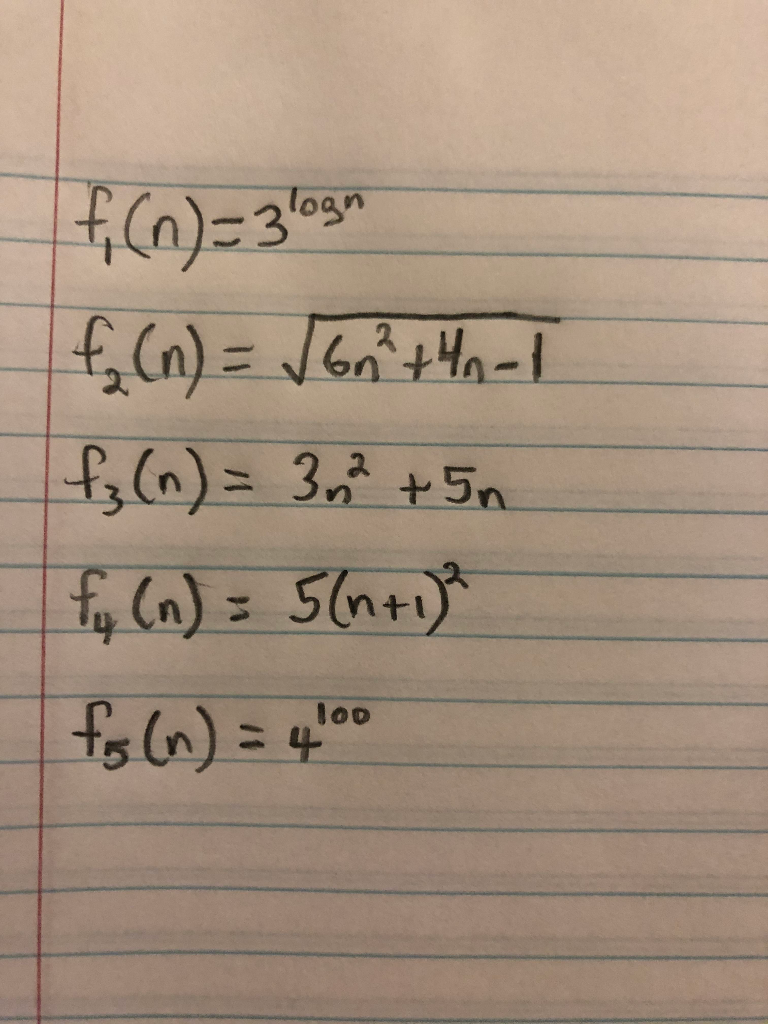 f₁(n) = 3^logn
f₂(n) = √(6n² + 4n - 1)
f₃(n) = 3n² + 5n
f₄(n) = 5(n+1)²
f₅(n) = 4¹⁰⁰